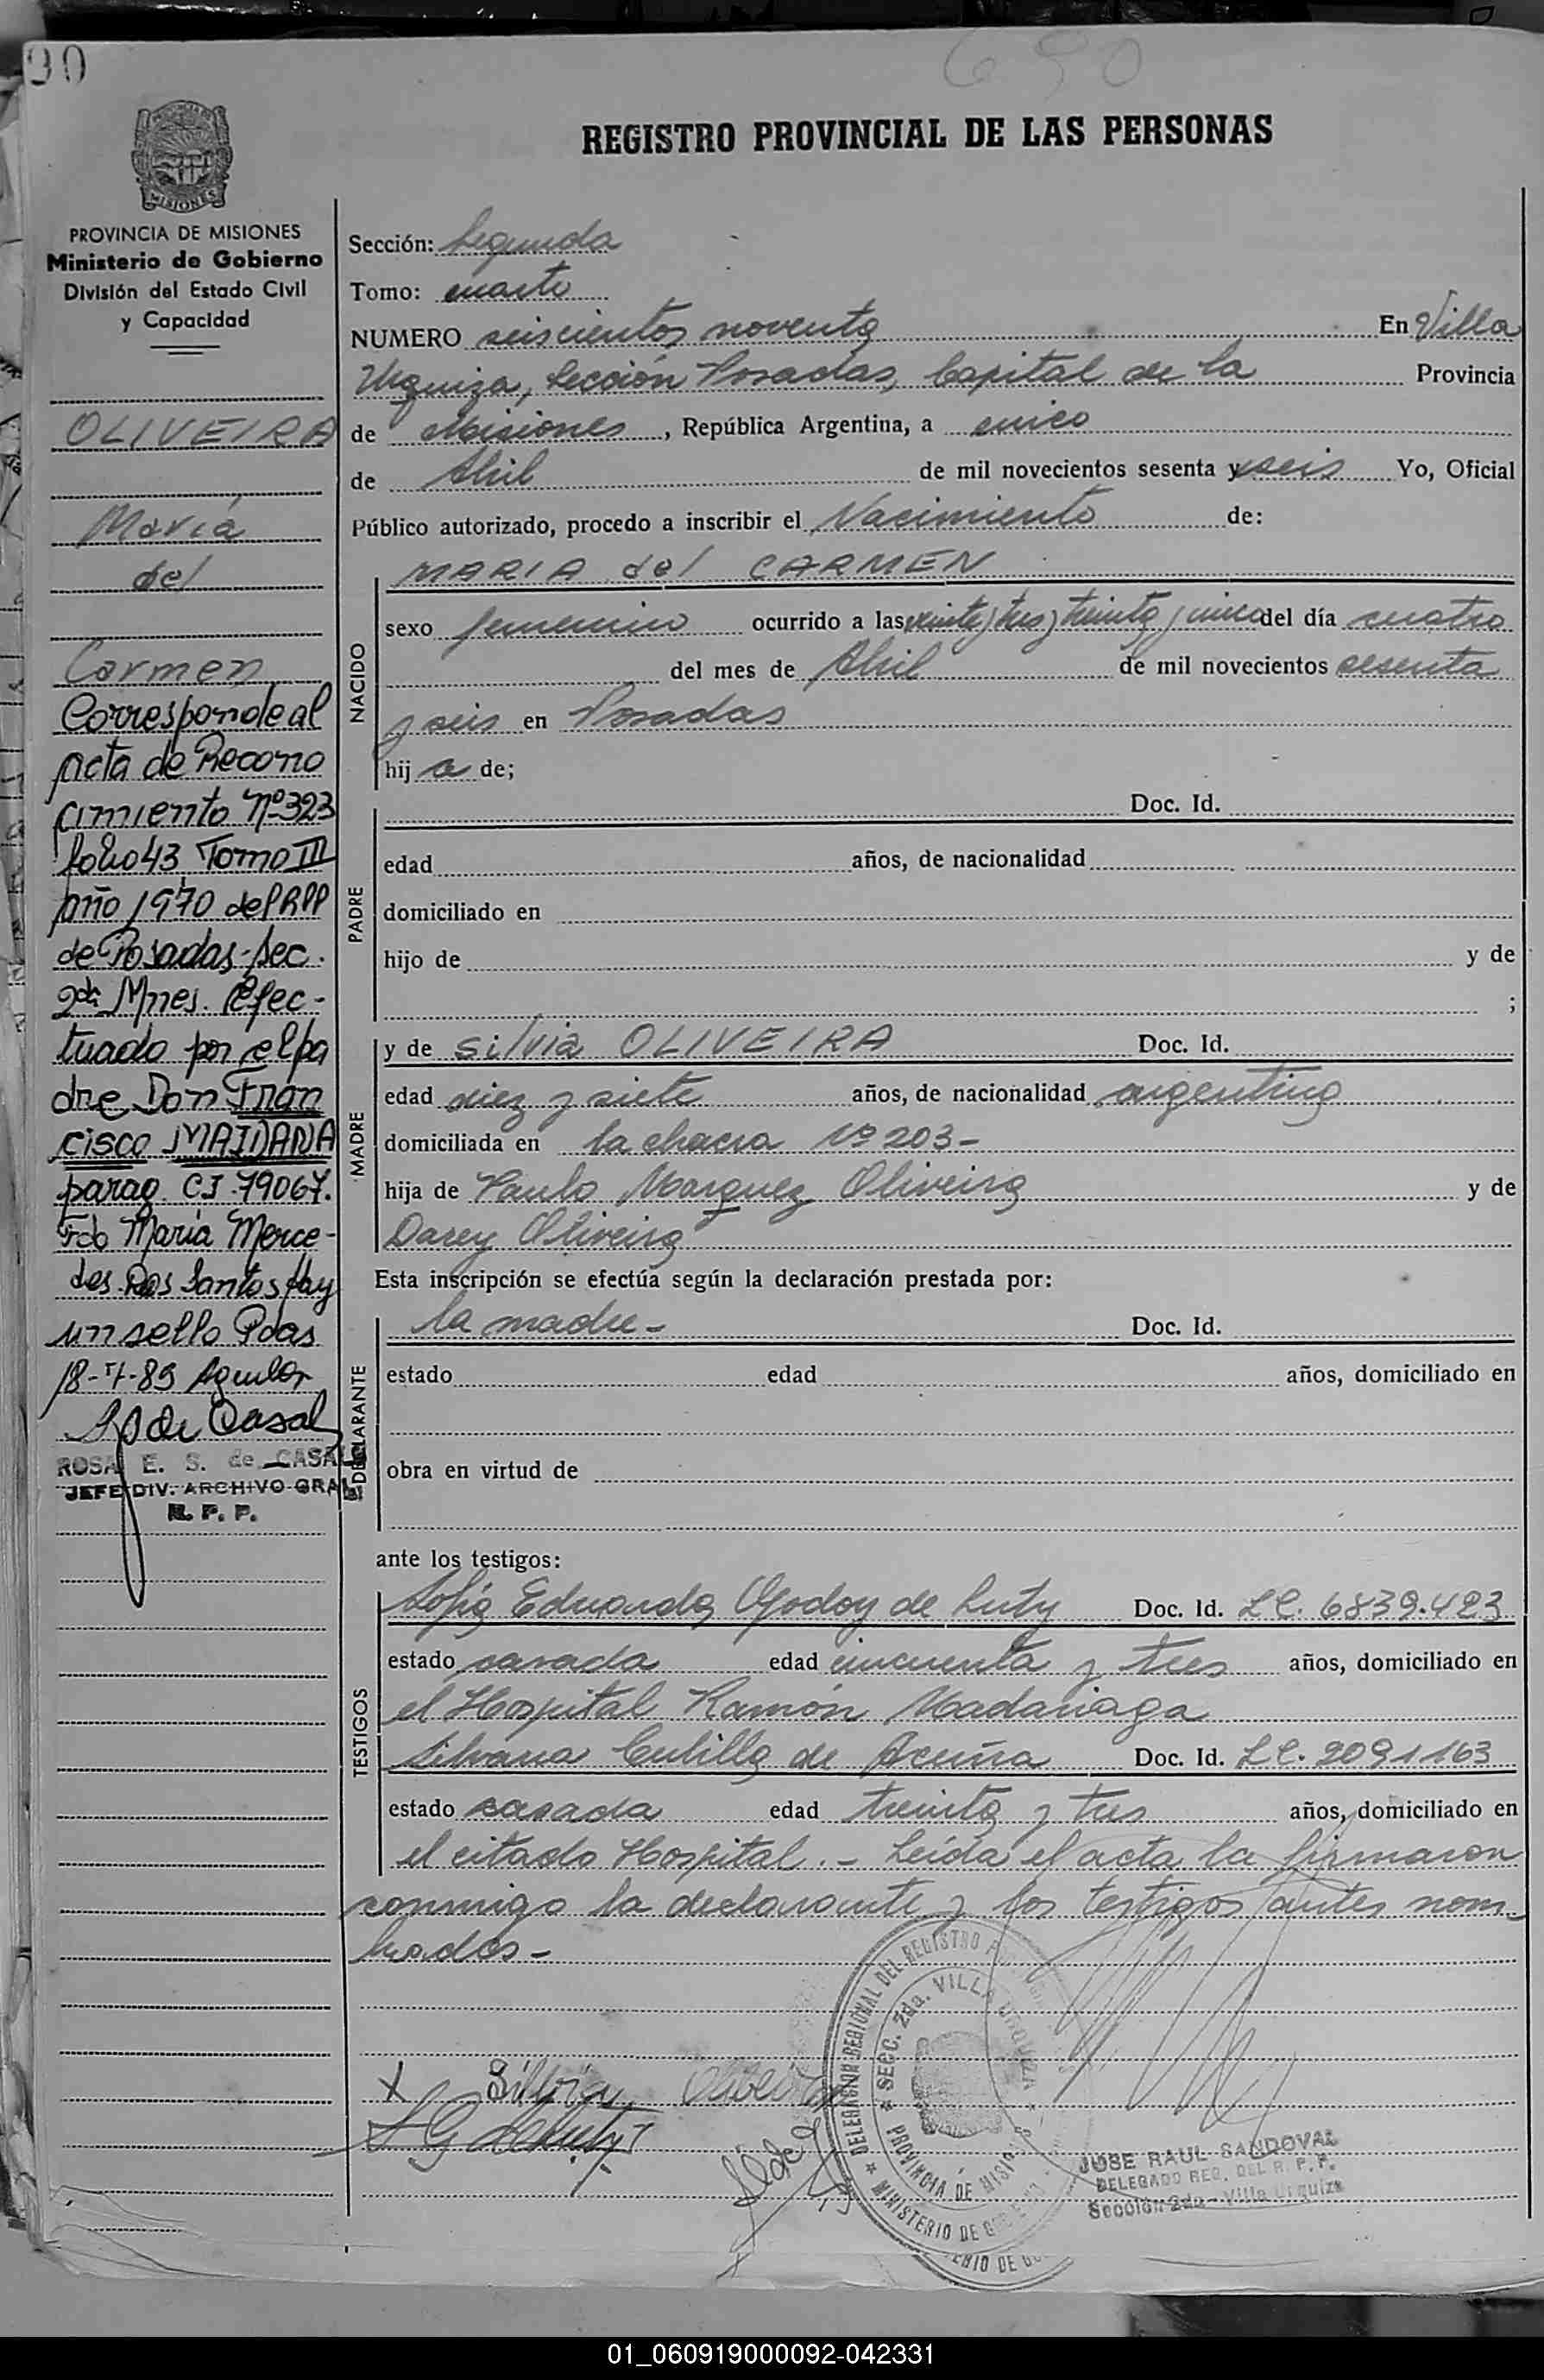 90
690
REGISTRO PROVINCIAL DE LAS PERSONAS
MISIONES
PROVINCIA DE MISIONES
Ministerio de Gobierno
División del Estado Civil
y Capacidad
OLIVEIRA
María
del
Carmen
Corresponde al
acta de Recono
cimiento Nº 323
folio 43 Tomo III
año 1970 del RPP
de Posadas-Sec.
2da Mnes. Efec-
tuado por el pa
dre Don Fran
cisco MAIDANA
parag. C.I. 79067.
Fdo María Merce-
des Dos Santos Hay
un sello Pdas
18- -89 Aguilar
ROSA E. S. de CASAL
JEFE DIV. ARCHIVO GRAL
R. P. P.
Sección: Segunda
Tomo: cuarto
NUMERO seiscientos noventa En Villa
Urquiza, Sección Posadas, Capital de la Provincia
de Misiones, República Argentina, a cinco
de Abril de mil novecientos sesenta y seis Yo, Oficial
Público autorizado, procedo a inscribir el Nacimiento de:
NACIDO
MARIA del CARMEN
sexo femenino ocurrido a las veinte y tres y treinta y cinco del día cuatro
del mes de Abril de mil novecientos sesenta
y seis en Posadas
hij a de;
PADRE
Doc. Id.
edad años, de nacionalidad
domiciliado en
hijo de y de
;
MADRE
y de Silvia OLIVEIRA Doc. Id.
edad diez y siete años, de nacionalidad argentina
domiciliada en la chacra Nº 203-
hija de Paulo Marquez Oliveira y de
Darcy Oliveira
Esta inscripción se efectúa según la declaración prestada por:
DECLARANTE
la madre- Doc. Id.
estado edad años, domiciliado en
obra en virtud de
ante los testigos:
TESTIGOS
Sofía Eduarda Godoy de Luty Doc. Id. LC. 6839.423
estado casada edad cincuenta y tres años, domiciliado en
el Hospital Ramón Madariaga
Silvana Cubilla de Acuña Doc. Id. LC. 2091163
estado casada edad treinta y tres años, domiciliado en
el citado Hospital.- Leída el acta la firmaron
conmigo la declarante y los testigos antes nom-
brados-
x Silvia Oliveira
DELEGACION REGIONAL DEL REGISTRO
SEC. 2da. VILLA URQUIZA
PROVINCIA DE MISIONES
MINISTERIO DE GOBIERNO
JOSE RAUL SANDOVAL
DELEGADO REG. DEL R. P. P.
Sección 2da - Villa Urquiza
01_060919000092-042331